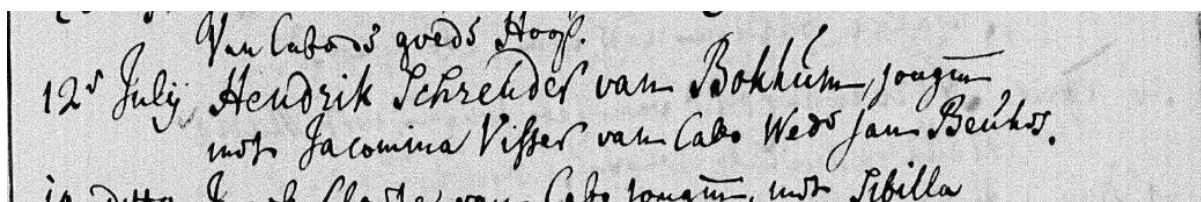 Van Cabo de goede Hoop.
12 d July Hendrik Schreuder van Bokhúm, jongm
met Jacomina Visser van Cabo Wede Jan Beúkes.
ditto van Cabo jongm, met Sibilla